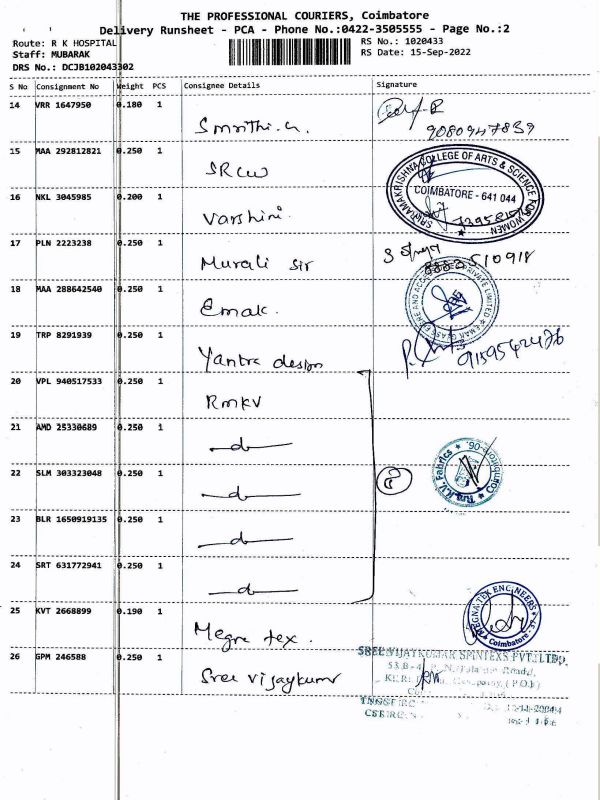 THE PROFESSIONAL COURIERS, Coimbatore
Delivery Runsheet - PCA - Phone No.:0422-3505555 - Page No.:2
Route: R K HOSPITAL
Staff: MUBARAK
DRS No.: DCJB102043302
RS No.: 1020433
RS Date: 15-Sep-2022
S No Consignment No Weight PCS Consignee Details Signature
14 VRR 1647950 0.180 1 Smrithi.G.
9080947839
15 MAA 292812821 0.250 1 SRCW
SRI RAMAKRISHNA COLLEGE OF ARTS & SCIENCE FOR WOMEN
COIMBATORE - 641 044
16 NKL 3045985 0.200 1 Varshini.
17 PLN 2223238 0.250 1 Murali Sir
510918
18 MAA 288642540 0.250 1 Emak.
PRIVATE LIMITED
19 TRP 8291939 0.250 1 Yantra design
9159562476
20 VPL 940517533 0.250 1 RMKV
21 AMD 25330689 0.250 1 —do—
Fabrics
22 SLM 303323048 0.250 1 —do—
23 BLR 1650919135 0.250 1 —do—
24 SRT 631772941 0.250 1 —do—
25 KVT 2668899 0.190 1 Megna tex.
MEGNA TEX ENGINEERS
Coimbatore
26 GPM 246588 0.250 1 Sree vijaykumr
SREE VIJAYKUMAR SPINTEXS PVT.LTD.